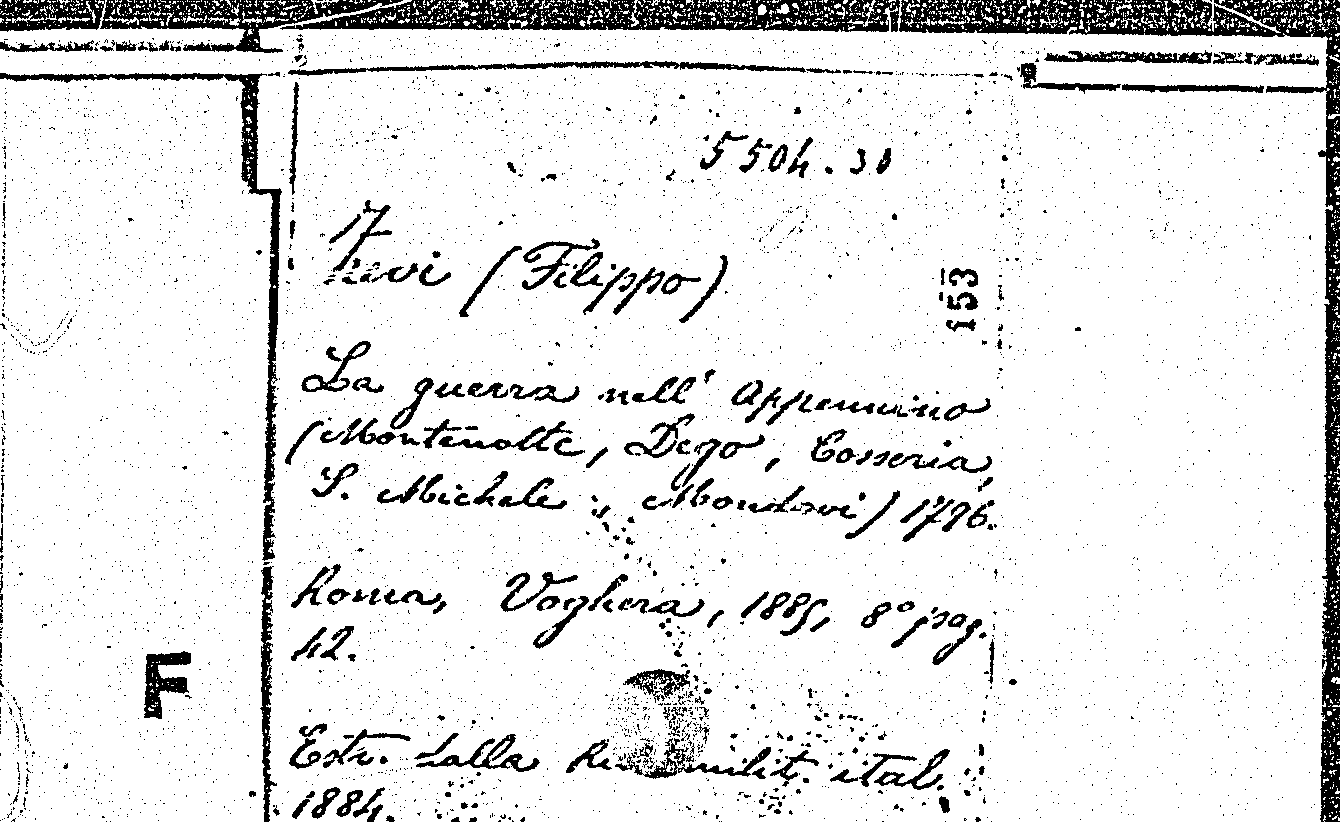 5504.30
17
Nevi (Filippo)
153
La guerra nell' Appennino
(Montenotte, Dego, Cosseria,
S. Michele, Mondovi) 1796.
Roma, Voghera, 1885, 8° pag.
42.
F
Estr. dalla milit. ital.
1884.